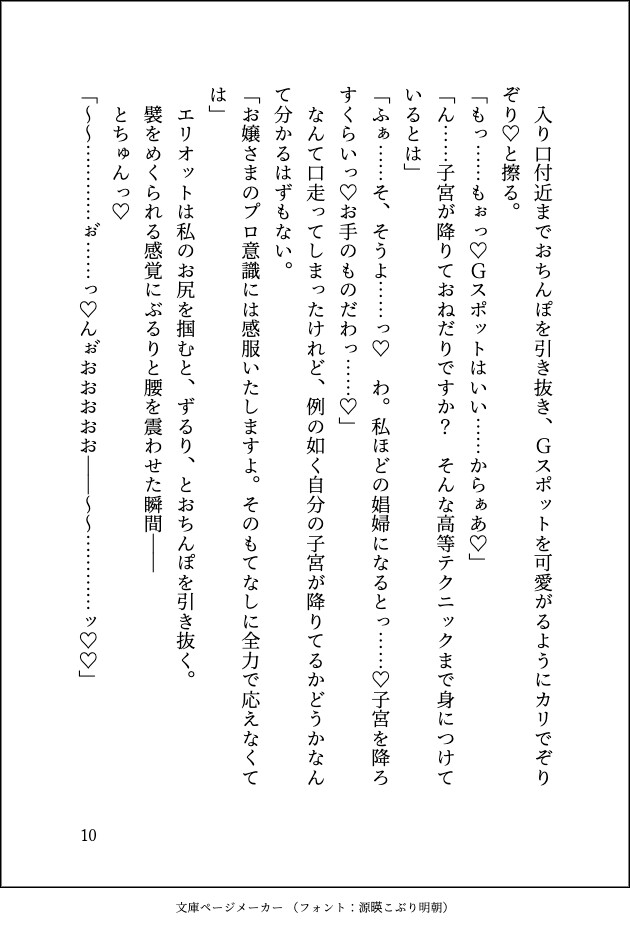 入り口付近までおちんぽを引き抜き、Ｇスポットを可愛がるようにカリでぞり
ぞり♡と擦る。
「もっ……もぉっ♡Ｇスポットはいい……からぁあ♡」
「ん……子宮が降りておねだりですか？　そんな高等テクニックまで身につけて
いるとは」
「ふぁ……そ、そうよ……っ♡　わ。私ほどの娼婦になるとっ……♡子宮を降ろ
すくらいっ♡お手のものだわっ……♡」
　なんて口走ってしまったけれど、例の如く自分の子宮が降りてるかどうかなん
て分かるはずもない。
「お嬢さまのプロ意識には感服いたしますよ。そのもてなしに全力で応えなくて
は」
　エリオットは私のお尻を掴むと、ずるり、とおちんぽを引き抜く。
　襞をめくられる感覚にぶるりと腰を震わせた瞬間――
　とちゅんっ♡
「～～…………ぉ゛……っ♡んぉ゛おおおおお――～～…………ッ♡♡」
10
文庫ページメーカー （フォント：源暎こぶり明朝）